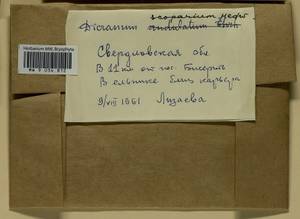 Herbarium MW, Bryophyta
MW 9 034 812
scoparium Hedw.
Dicranum undulatum Ehrh
Свердловская обл
В 11 км от пос. Бисерть
В ельнике близ карьера
9/VIII 1961 Лизаева